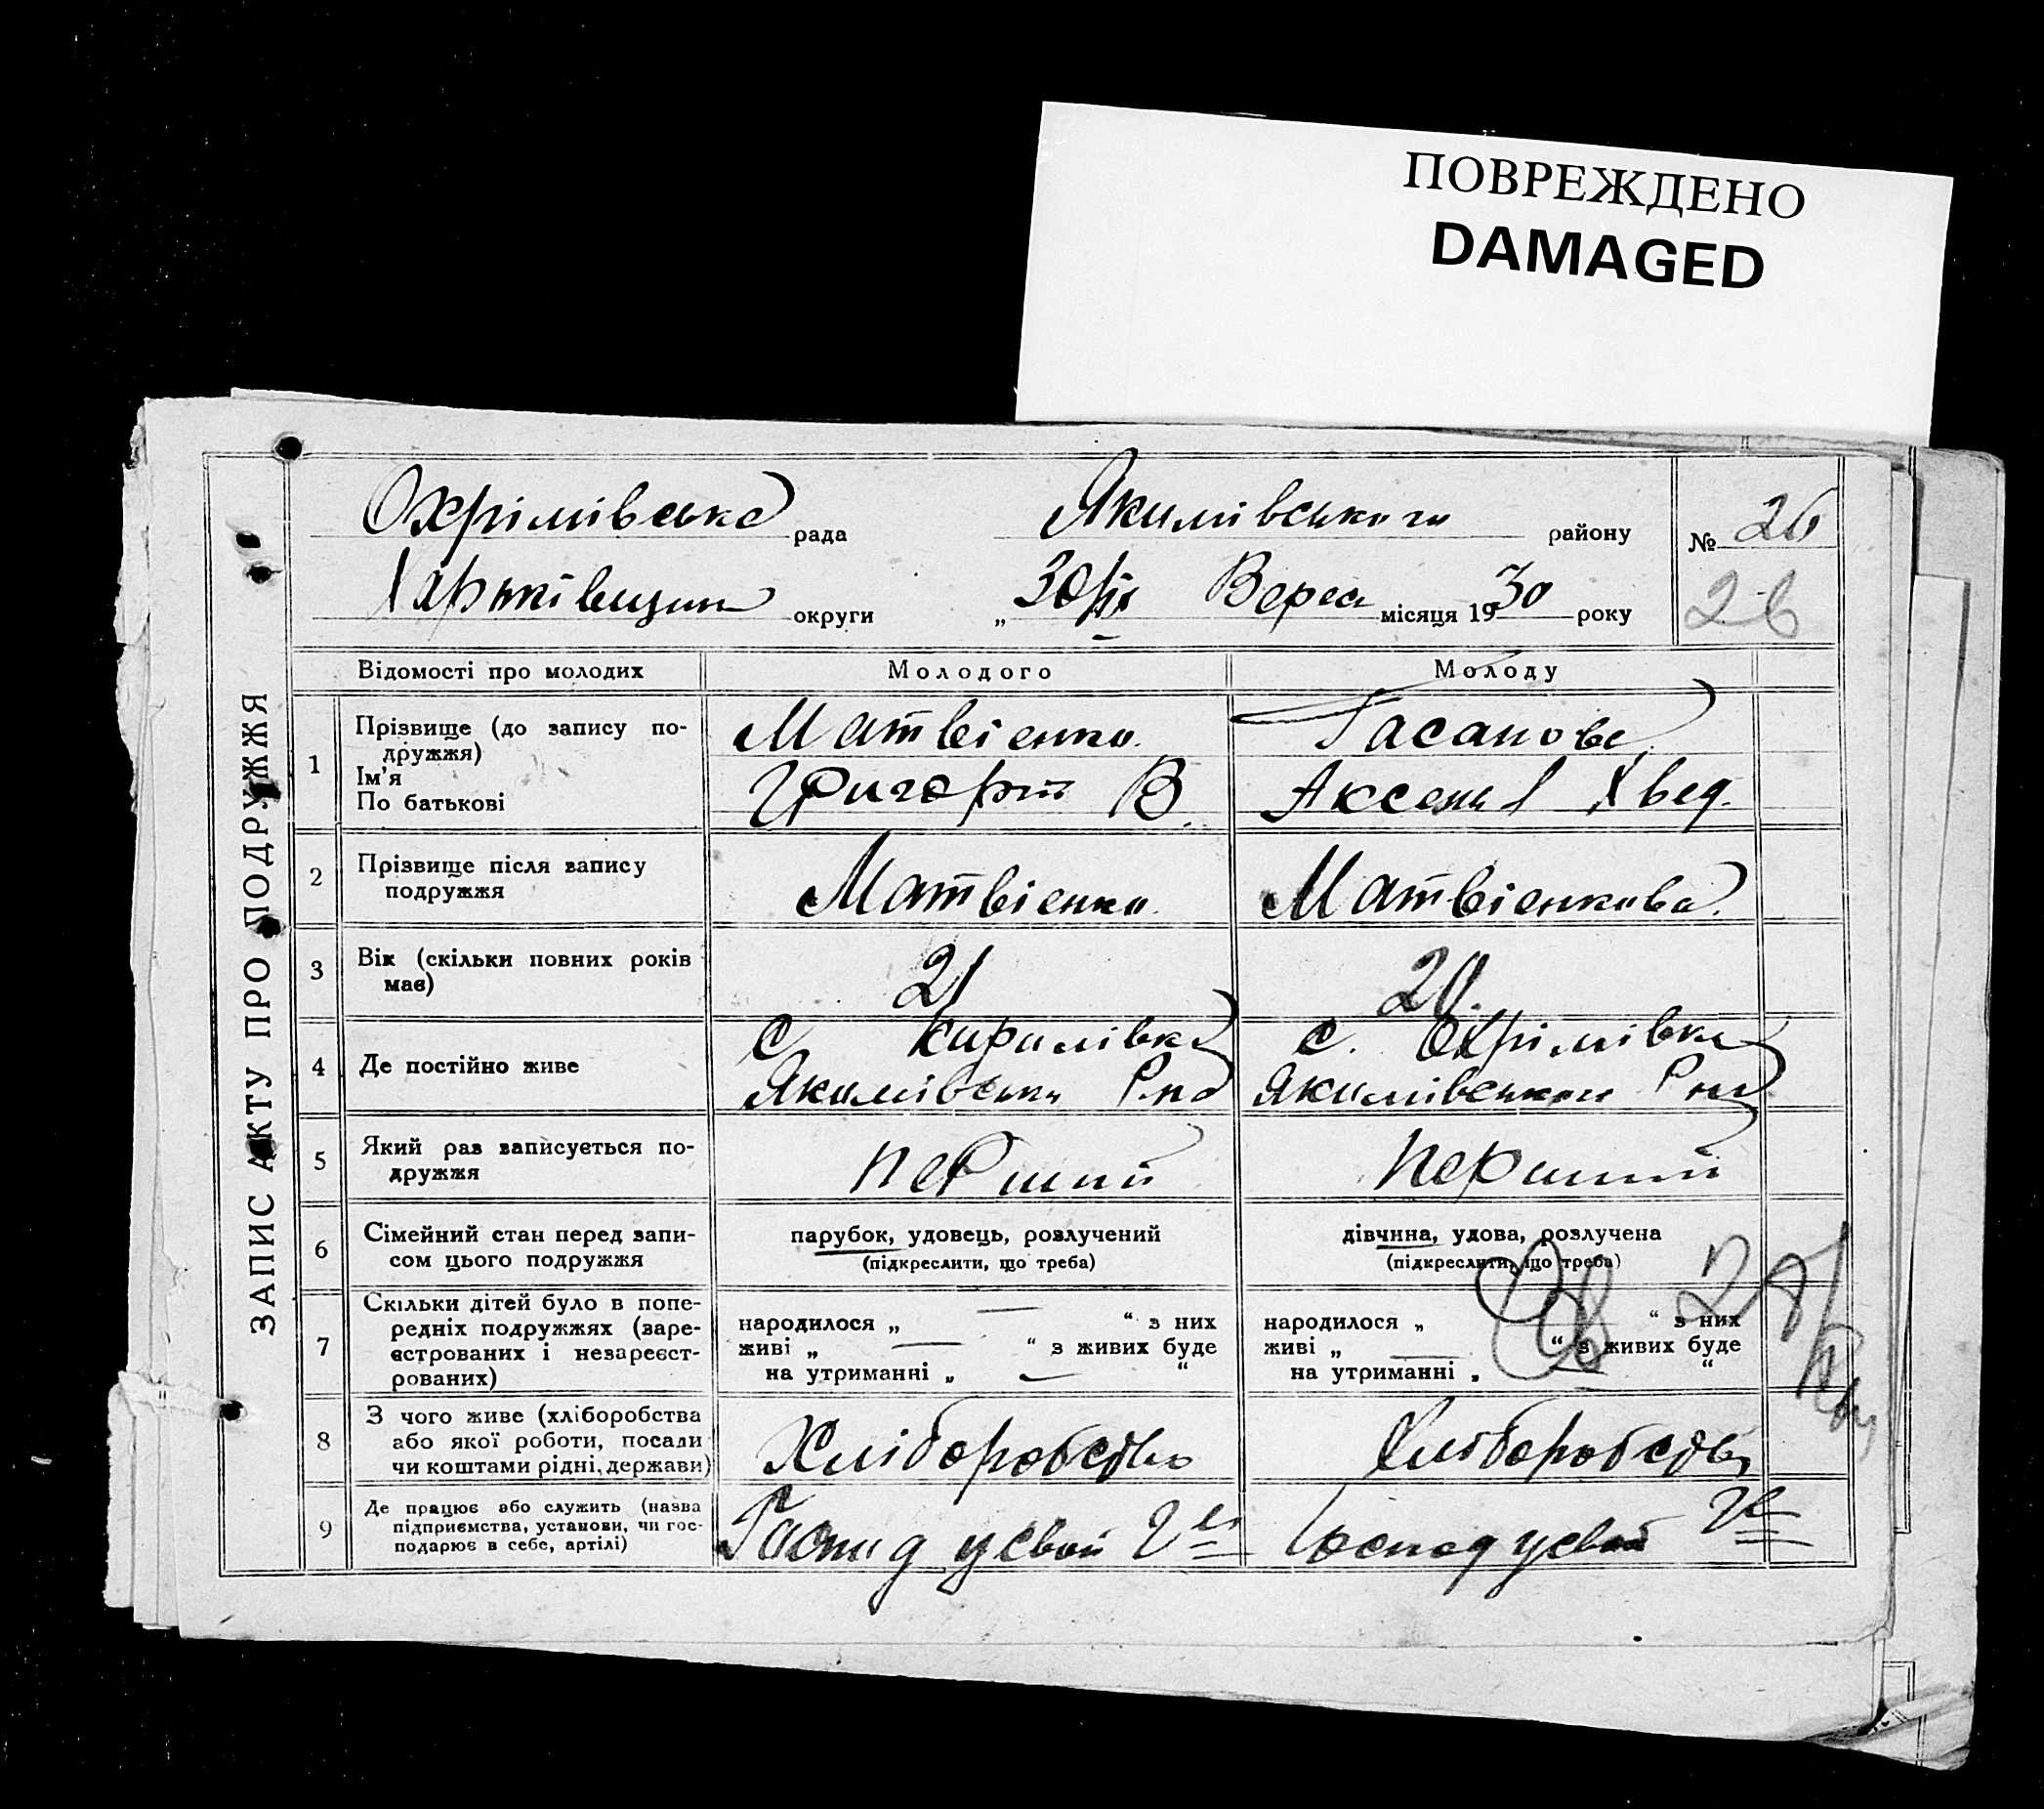 ПОВРЕЖДЕНО
DAMAGED
ЗАПИС АКТУ ПРО ПОДРУЖЖЯ
Охрімівська рада Якимівського району № 26
округи „ 30/ІХ Верес місяця 1930 року 26
Відомості про молодих Молодого Молоду
1 Прізвище (до запису по- Матвієнко Гасанова
дружжя)
Ім'я Григорій В. Аксенія Хвед.
По батькові
2 Прізвище після запису Матвієнко Матвієнкова
подружжя
3 Вік (скільки повних років 21 20
має)
4 Де постійно живе с. Кирилівка с. Охрімівка
Якимівськ Якимівського
5 Який раз записується по- перший перший
дружжя
6 Сімейний стан перед запи- парубок, удовець, розлучений дівчина, удова, розлучена
сом цього подружжя (підкреслити, що треба) (підкреслити, що треба)
7 Скільки дітей було в попе- народилося „ — “ з них народилося „ “ з них
редніх подружжях (заре- живі „ — “ з живих буде живі „ — “ з живих буде
єстрованих і незареєст- на утриманні „ — “ на утриманні „ — “
рованих)
8 З чого живе (хліборобства Хліборобство Хліборобство
або якої роботи, посади
чи коштами рідні, держави)
9 Де працює або служить (назва Господ у свой Господ у свой
підприємства, установи, чи гос-
подарює в себе, артілі)